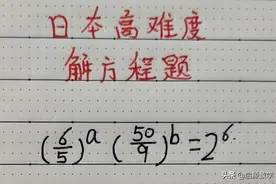 日本高难度
解方程题
(6/5)^a (50/9)^b = 2^6.
头条 @启酷数学